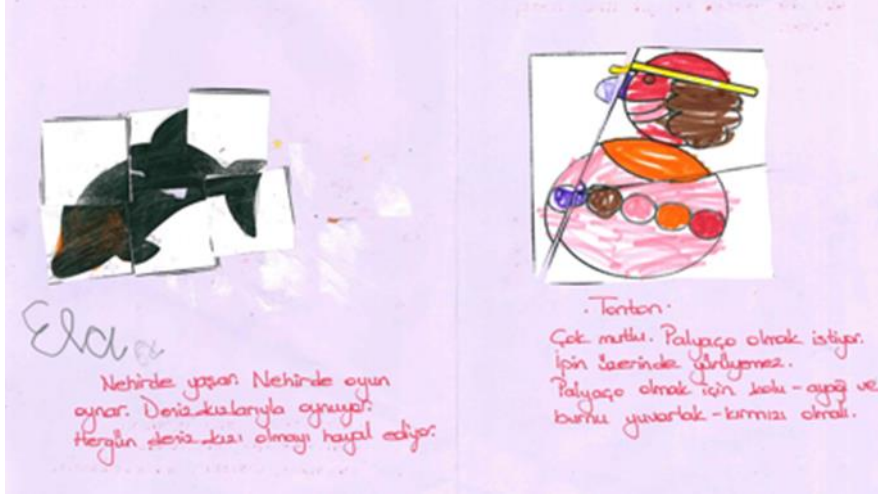 Ela
Nehirde yaşar. Nehirde oyun
oynar. Deniz kızlarıyla oynuyor.
Hergün deniz kızı olmayı hayal ediyor.
. Tonton .
Çok mutlu. Palyaço olmak istiyor.
İpin üzerinde yürüyemez.
Palyaço olmak için kolu - ayağı ve
burnu yuvarlak - kırmızı olmalı.